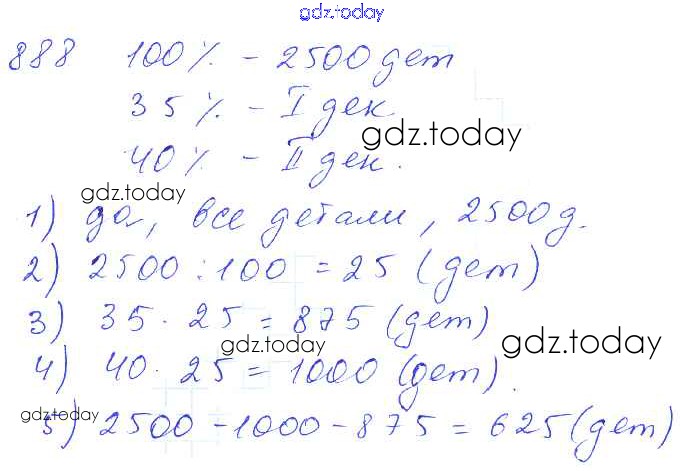 gdz.today
888 100% - 2500 дет
35% - I дек
gdz.today
40% - II дек.
gdz.today
1) да, все детали, 2500 д.
2) 2500 : 100 = 25 (дет)
3) 35 · 25 = 875 (дет)
gdz.today
gdz.today
4) 40 · 25 = 1000 (дет).
gdz.today
5) 2500 - 1000 - 875 = 625 (дет)